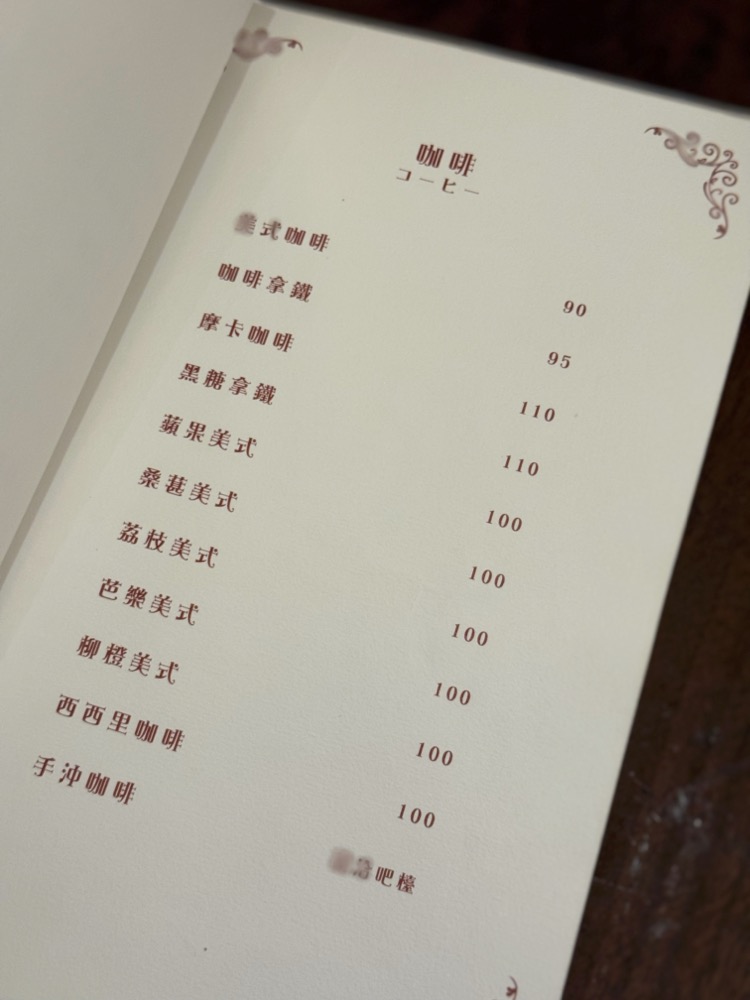 咖啡
コーヒー
式咖啡 90
咖啡拿鐵 95
摩卡咖啡 110
黑糖拿鐵 110
蘋果美式 100
桑葚美式 100
荔枝美式 100
芭樂美式 100
柳橙美式 100
西西里咖啡 100
手沖咖啡 吧檯